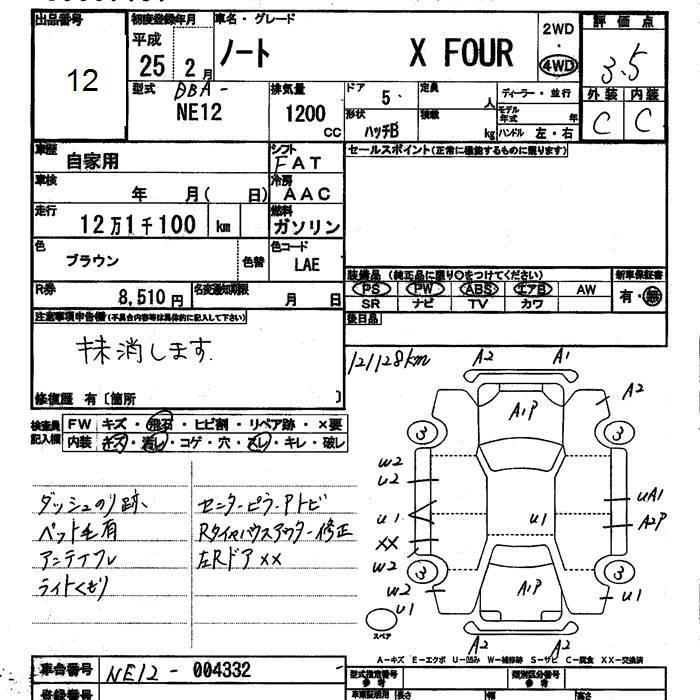 出品番号
12
初度登録年月
平成
25 2月
車名・グレード
ノート X FOUR
2WD
・
4WD
評価点
3.5
型式
DBA-
NE12
排気量
1200
CC
ドア
5
形状
ハッチB
定員
人
積載
kg
ディーラー・並行
モデル
年式
年
ハンドル 左・右
外装 内装
C C
車歴
自家用
シフト
FAT
車検
年 月( 日)
冷房
AAC
走行
12万1千100 km
燃料
ガソリン
色
ブラウン
色替
色コード
LAE
R券
8,510 円
名変通知期限
月 日
セールスポイント(正常に機能するものに限ります)
装備品 (純正品に限り○をつけてください)
PS PW ABS エアB AW
SR ナビ TV カワ
新車保証書
有・無
後日品
注意事項申告欄(不具合内容等は具体的に記入して下さい)
抹消します
修復歴 有〔箇所 〕
検査員
記入欄
FW キズ・飛石・ヒビ割・リペア跡・×要
内装 キズ・汚レ・コゲ・穴・スレ・キレ・破レ
ダッシュのり跡
ペット毛有
アンテナフレ
ライトくもり
センターピラーPトビ
Rタイヤハウスアウター修正
左Rドア××
121128km
A2 A1
A2
A1P
3 3
W2
U2
U1
XX
W2
U1
UA1
A2P
3 3
W2
U1
A1P
U1
A2 A2
スペア
A-キズ E-エクボ U-凹み W-補修跡 S-サビ C-腐食 XX-交換済
車台番号
NE12-004332
登録番号
型式指定番号
参考
類別区分番号
参考
車車証現用 長さ 幅 高さ